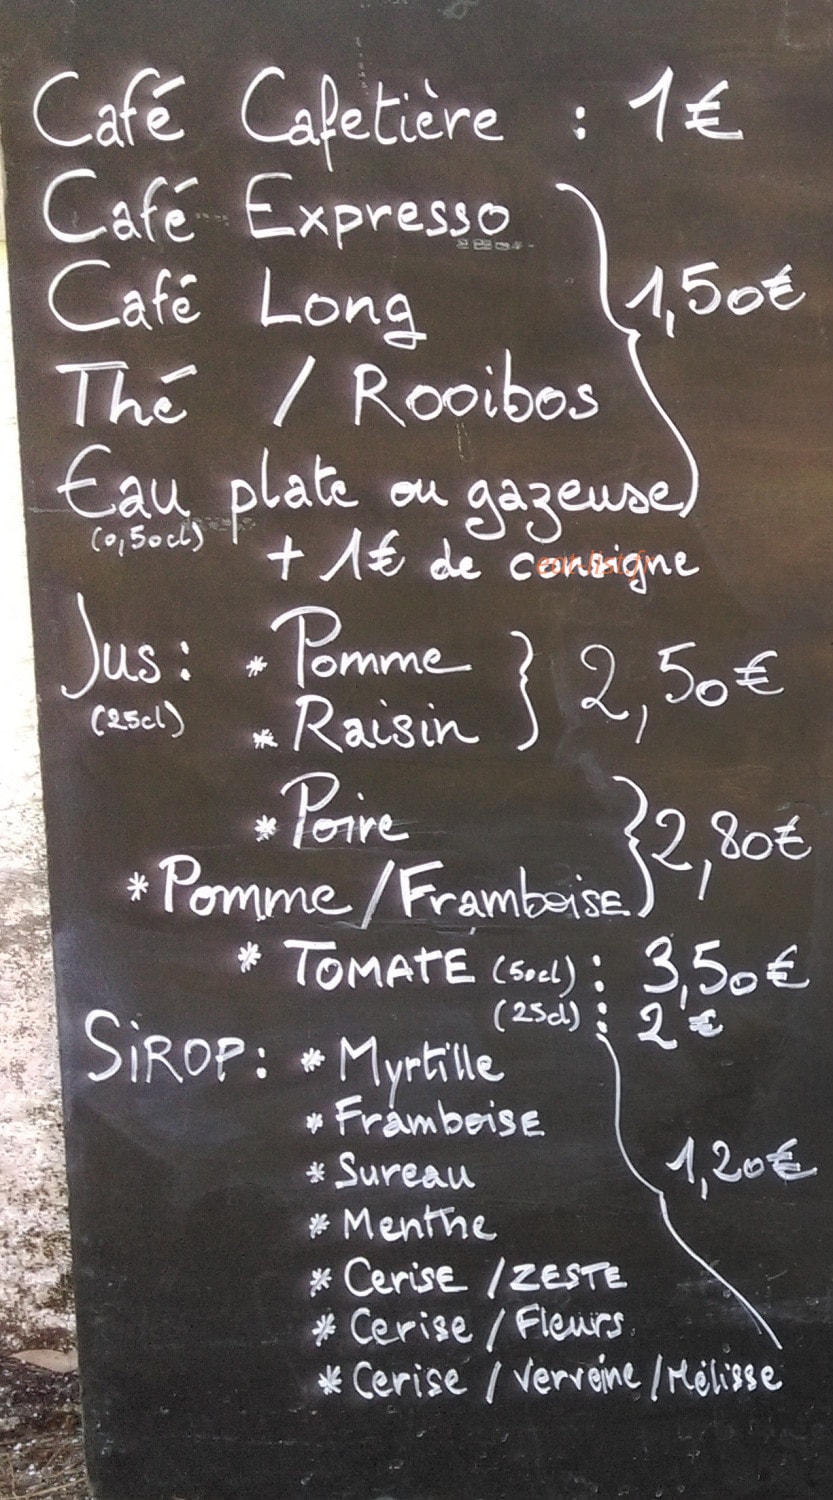 Café Cafetière : 1€
Café Expresso
Café Long
1,50€
Thé / Rooibos
Eau plate ou gazeuse
(0,50cl)
+ 1€ de consigne
Jus : * Pomme
2,50€
(25cl)
* Raisin
* Poire
2,80€
* Pomme / Framboise
* TOMATE (50cl) : 3,50€
(25cl) : 2€
SIROP : * Myrtille
* Framboise
* Sureau
1,20€
* Menthe
* Cerise / ZESTE
* Cerise / Fleurs
* Cerise / Verveine / Mélisse